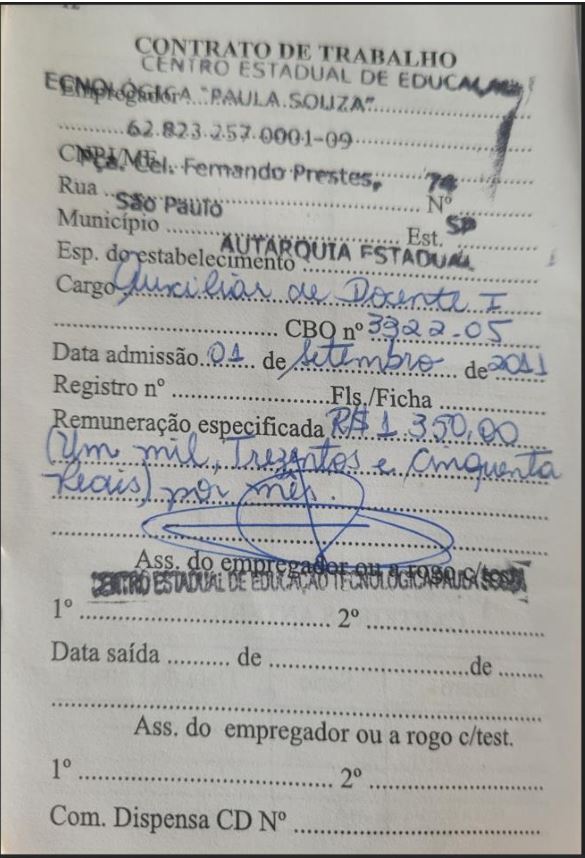 CONTRATO DE TRABALHO
CENTRO ESTADUAL DE EDUCA
ECNOLÓGICA "PAULA SOUZA"
Empregador
62.823.257.0001-09
CNPJ/MF
Pça. Cel. Fernando Prestes, 74
Rua Nº
São Paulo SP
Município Est.
AUTARQUIA ESTADUAL
Esp. do estabelecimento
Cargo Auxiliar de Docente I
CBO nº 3322-05
Data admissão 01 de Setembro de 2011
Registro nº Fls./Ficha
Remuneração especificada R$ 1.350,00
(Um mil, Trezentos e Cinquenta
Reais) por mês.
Ass. do empregador ou a rogo c/test.
CENTRO ESTADUAL DE EDUCAÇÃO TECNOLÓGICA PAULA SOUZA
1º 2º
Data saída de de
Ass. do empregador ou a rogo c/test.
1º 2º
Com. Dispensa CD Nº